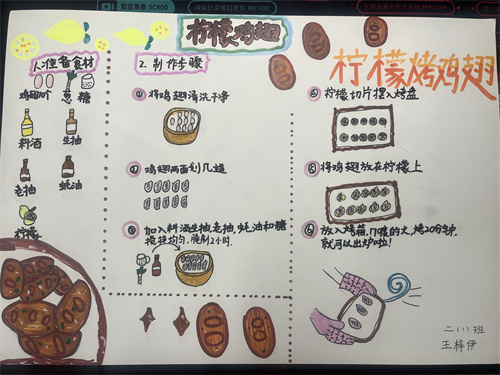 柠檬鸡翅
柠檬烤鸡翅
1.准备食材
鸡翅10个 葱 糖
料酒 生抽
老抽 蚝油
柠檬
2.制作步骤
① 将鸡翅清洗干净
② 鸡翅两面划几道
③ 加入料酒生抽,老抽,蚝油和糖
搅拌均匀,腌制2小时.
④ 柠檬切片摆入烤盘
⑤ 将鸡翅放在柠檬上
⑥ 放入烤箱,170度的火,烤20分钟
就可以出炉啦!
二(1)班
王梓伊